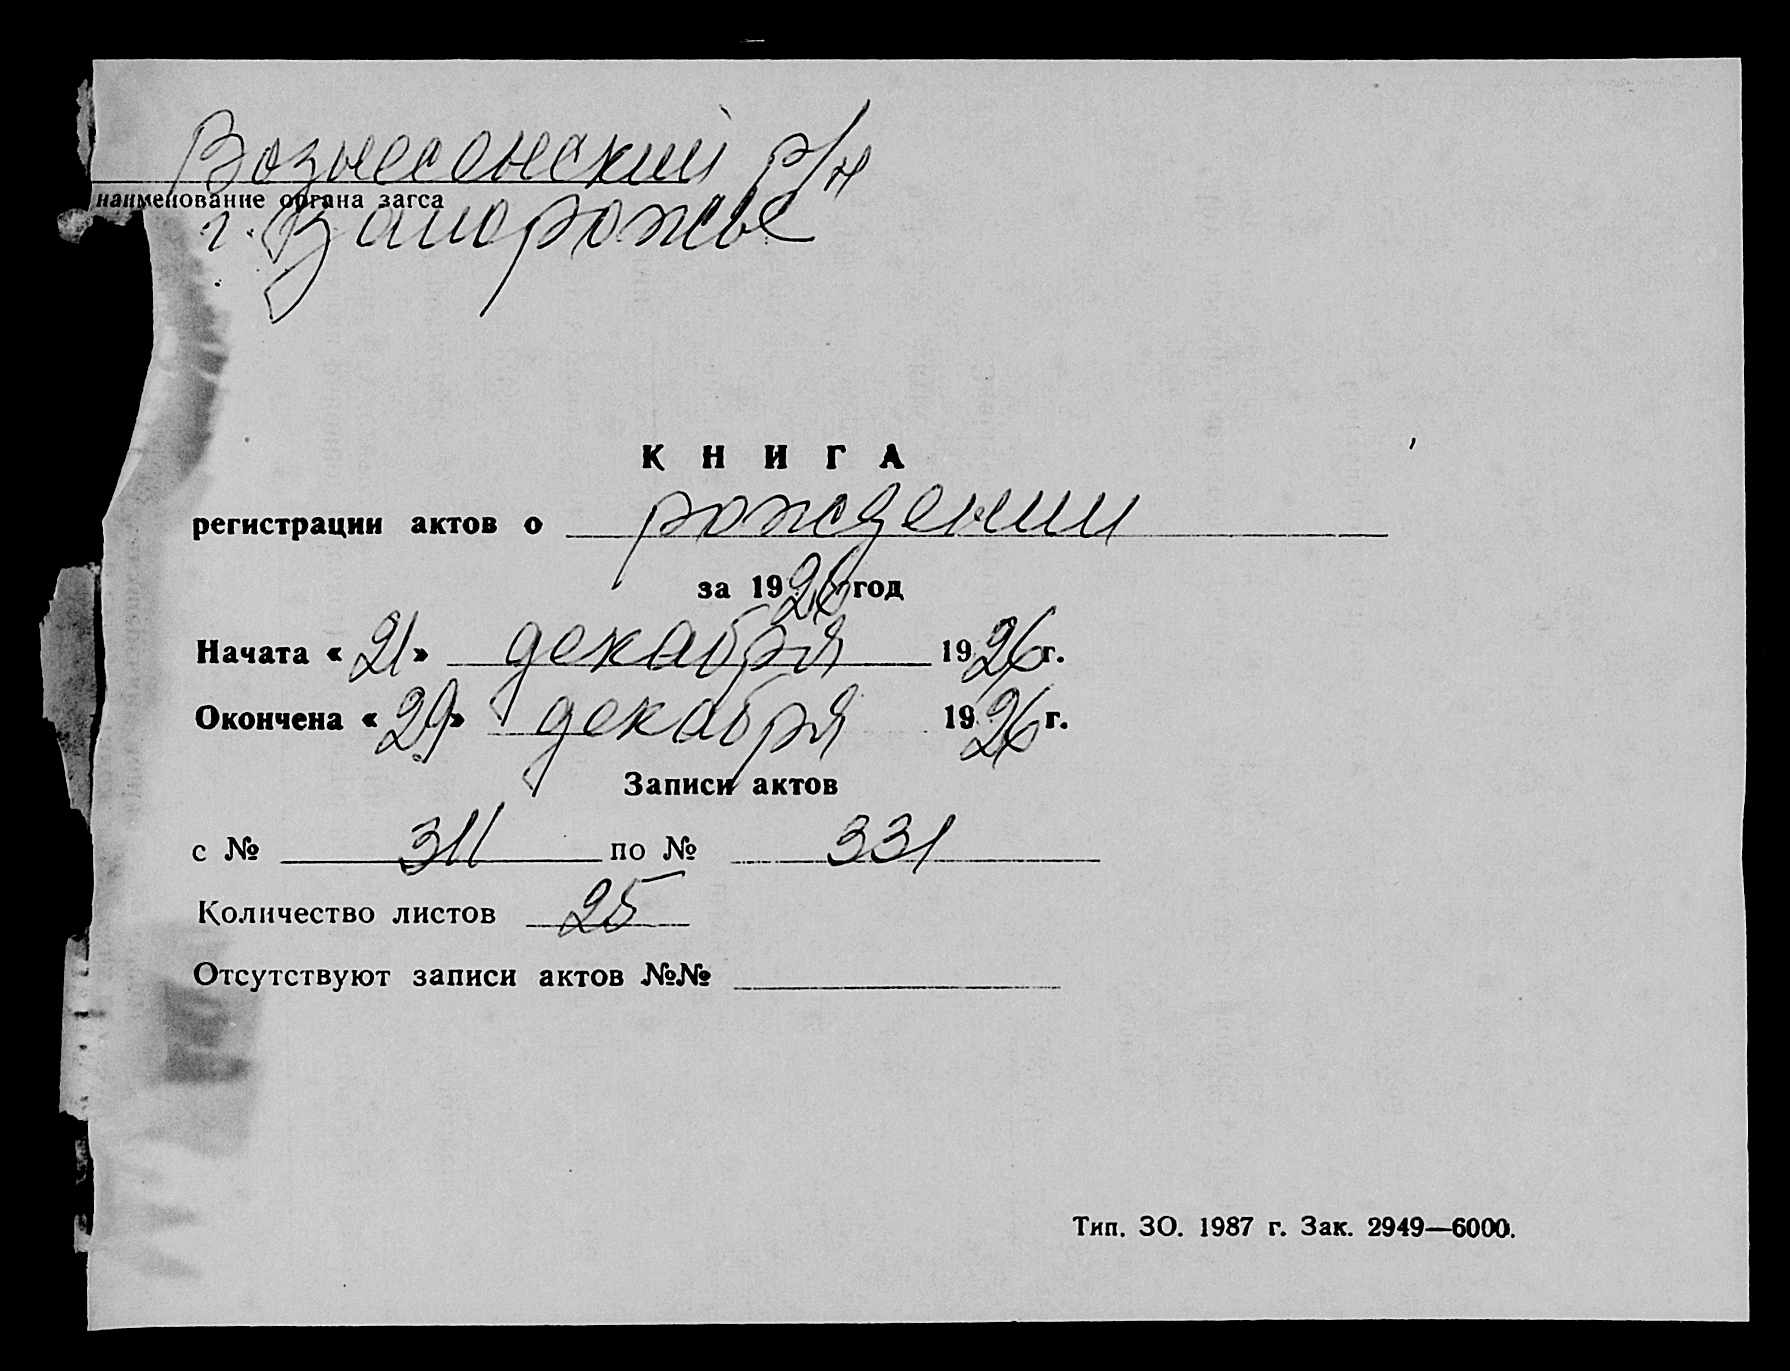 Вознесенский р/н
наименование органа загса
г. Запорожье
КНИГА
регистрации актов о рождении
за 1926 год
Начата «21» декабря 1926 г.
Окончена «29» декабря 1926 г.
Записи актов
с № 311 по № 331
Количество листов 25
Отсутствуют записи актов №№
Тип. ЗО. 1987 г. Зак. 2949—6000.